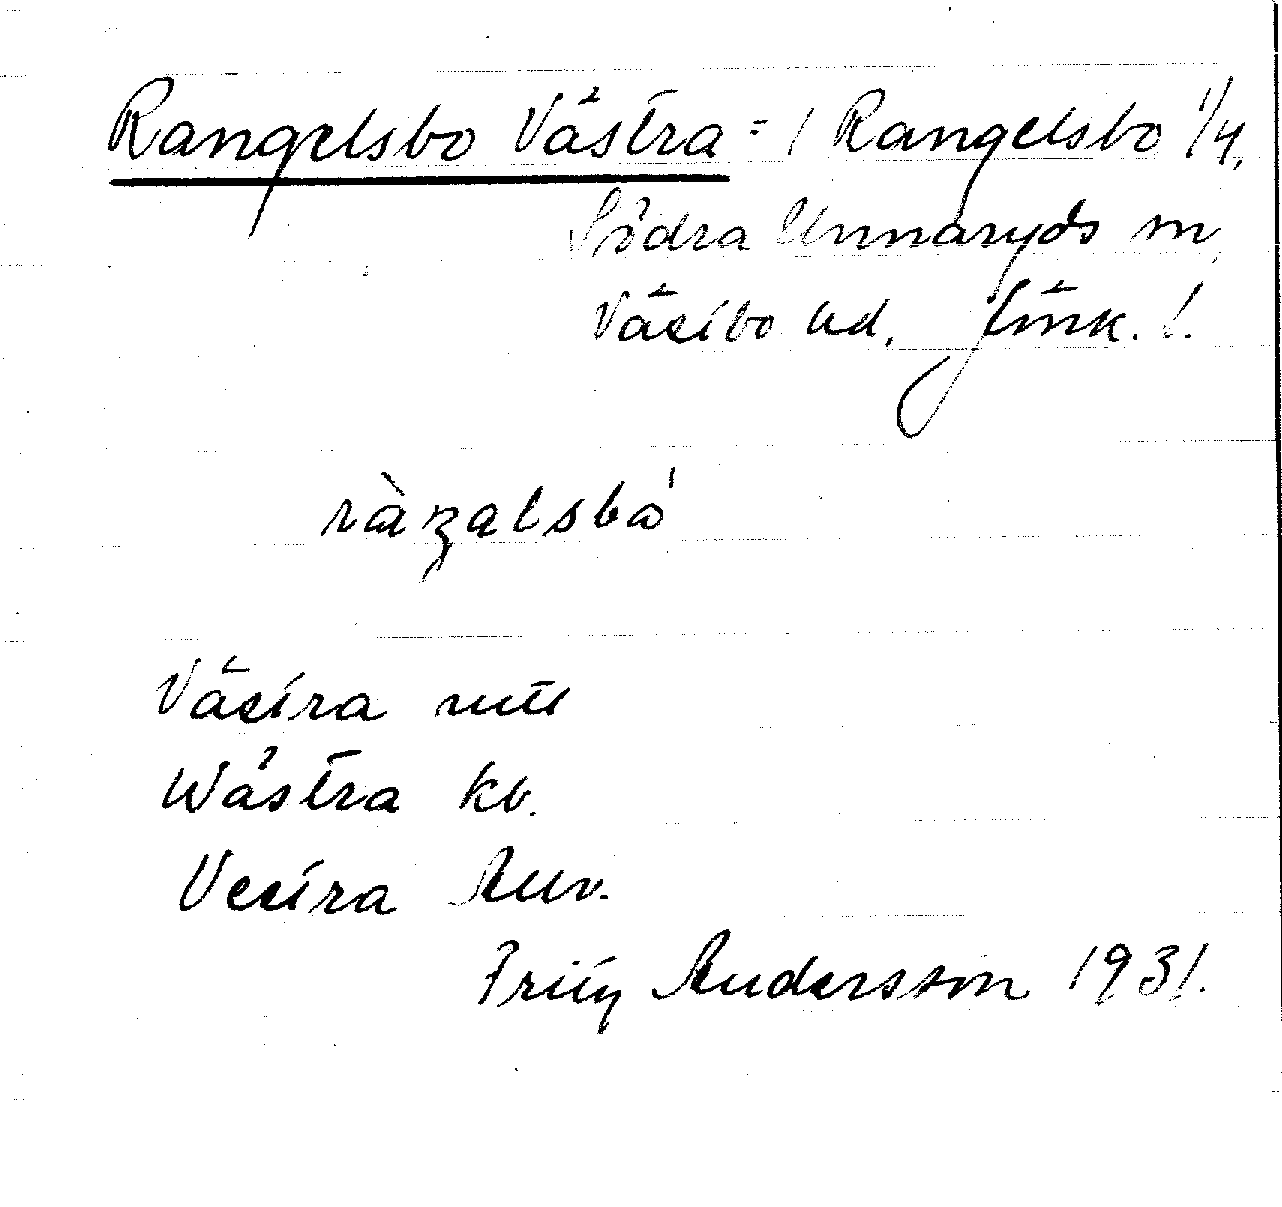 Rangelsbo Västra = 1 Rangelsbo 1/4,
Södra Unnaryds sn,
Västbo hd, Jönk. l.
ràŋalsbó
Västra mtl
Wästra kb.
Vestra Auv.
Fritz Andersson 1931.